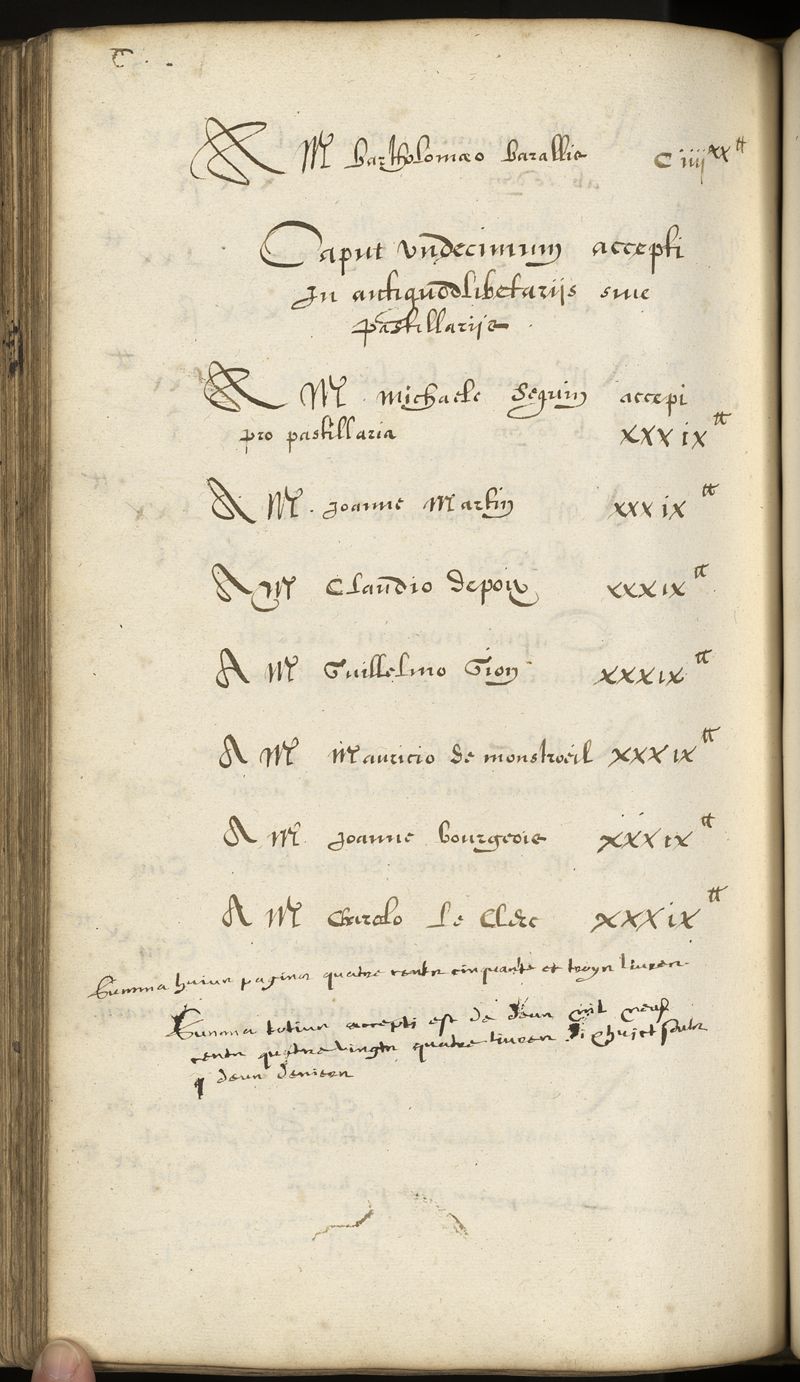 A M Bartholomæo Barallis C iiij xx tt
Caput vndecimum accepti
In antiquodlibetariis siue
pastillariis
A M Michaele Seguin accepi
pro pastillaria xxxix tt
A M. Joanne Martin xxxix tt
A M Claudio Depoix xxxix tt
A M Guillelmo Gion xxxix tt
A M Mauricio de monstroeil xxxix tt
A M Joanne bourgeois xxxix tt
A M Carolo Le Clerc xxxix tt
Summa huius paginæ quatre cents cinquante et troys liures
Summa totius accepti est de deux mil neuf
cents quatre vingts quatre liures dixhuict soulz
deux deniers